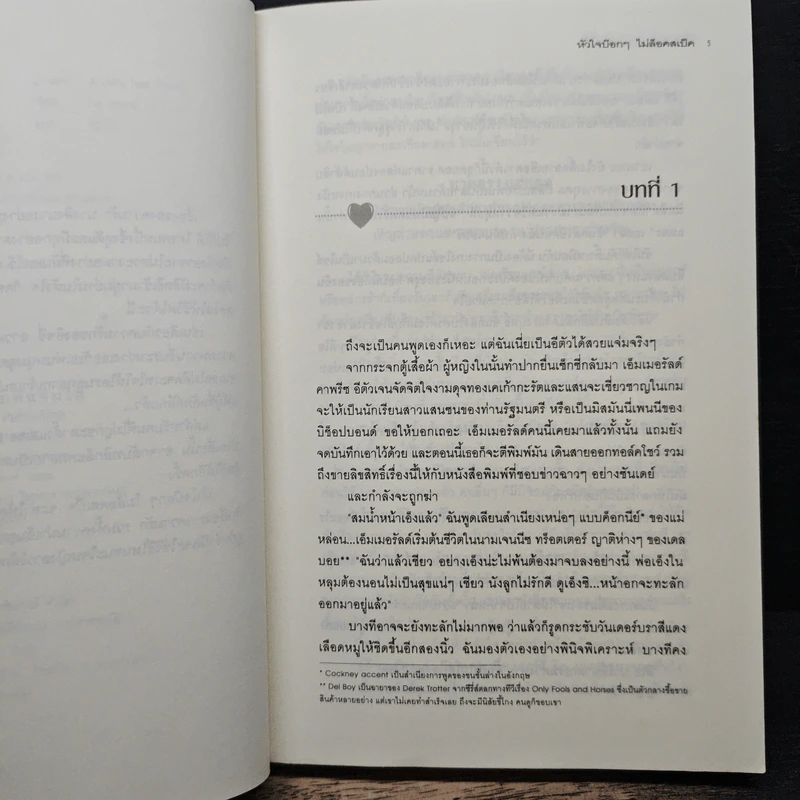 หัวใจบ๊อกๆ ไม่ล็อคสเป๊ค 5
บทที่ 1
ถึงจะเป็นคนพูดเองก็เหอะ แต่ฉันเนี่ยเป็นอีตัวได้สวยแจ่มจริงๆ
จากกระจกตู้เสื้อผ้า ผู้หญิงในนั้นทำปากยื่นเซ็กซี่กลับมา เอ็มเมอรัลด์
คาพรีซ อีตัวเจนจัดจิตใจงามดุจทองเคเก้ากะรัตและแสนจะเชี่ยวชาญในเกม
จะให้เป็นนักเรียนสาวแสนซนของท่านรัฐมนตรี หรือเป็นมิสมันนี่เพนนีของ
บิช็อปบอนด์ ขอให้บอกเถอะ เอ็มเมอรัลด์คนนี้เคยมาแล้วทั้งนั้น แถมยัง
จดบันทึกเอาไว้ด้วย และตอนนี้เธอก็จะตีพิมพ์มัน เดินสายออกทอล์คโชว์ รวม
ถึงขายลิขสิทธิ์เรื่องนี้ให้กับหนังสือพิมพ์ที่ชอบข่าวฉาวๆ อย่างซันเดย์
และกำลังจะถูกฆ่า
"สมน้ำหน้าเอ็งแล้ว" ฉันพูดเลียนสำเนียงเหน่อๆ แบบค็อกนีย์* ของแม่
หล่อน...เอ็มเมอรัลด์เริ่มต้นชีวิตในนามเจนนีซ ทร็อตเตอร์ ญาติห่างๆ ของเดล
บอย** "ฉันว่าแล้วเชียว อย่างเอ็งน่ะไม่พ้นต้องมาจบลงอย่างนี้ พ่อเอ็งใน
หลุมต้องนอนไม่เป็นสุขแน่ๆ เชียว นังลูกไม่รักดี ดูเอ็งซิ...หน้าอกจะทะลัก
ออกมาอยู่แล้ว"
บางทีอาจจะยังทะลักไม่มากพอ ว่าแล้วก็รูดกระชับวันเดอร์บราสีแดง
เลือดหมูให้ชิดขึ้นอีกสองนิ้ว ฉันมองตัวเองอย่างพินิจพิเคราะห์ บางทีคง
* Cockney accent เป็นสำเนียงการพูดของชนชั้นล่างในอังกฤษ
** Del Boy เป็นฉายาของ Derek Trotter จากซีรี่ส์ตลกทางทีวีเรื่อง Only Fools and Horses ซึ่งเป็นตัวกลางซื้อขาย
สินค้าหลายอย่าง แต่เขาไม่เคยทำสำเร็จเลย ถึงจะมีนิสัยขี้โกง คนดูก็ชอบเขา